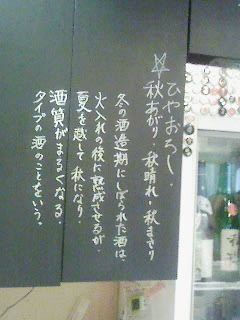 ☆ひやおろし・
秋あがり・秋晴れ・秋まさり
冬の酒造期にしぼられた酒は、
火入れの後に熟成させるが、
夏を越して秋になり、
酒質がまるくなる。
タイプの酒のことをいう。